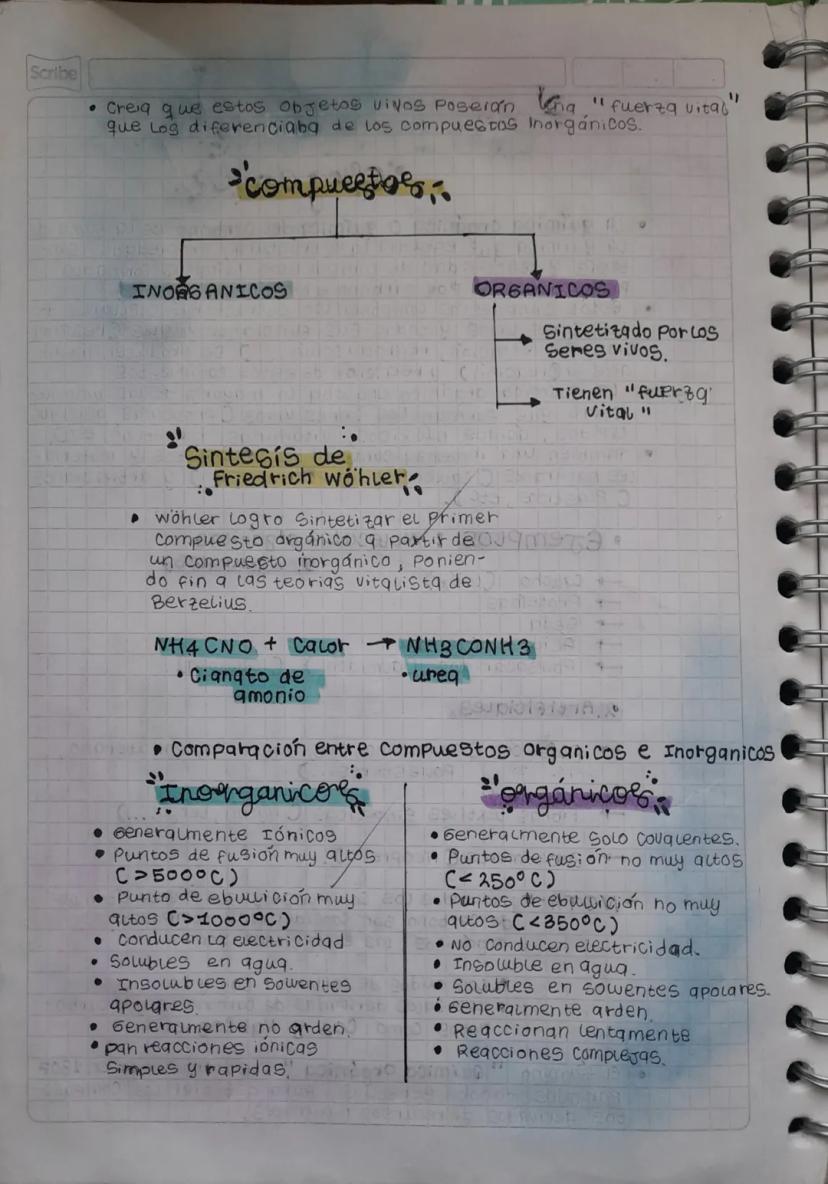 Scribe
• Creia que estos objetos vivos poseían una "fuerza vital"
que los diferenciaba de los compuestos Inorgánicos.
compuestos
INORGANICOS
ORGANICOS
Sintetizado por los
Seres vivos.
Tienen "fuerza
vital"
Sintesís de
Friedrich Wöhler
• Wöhler logro sintetizar el primer
compuesto orgánico a partir de
un compuesto inorgánico, ponien-
do fin a las teorias vitalista de
Berzelius.
NH4CNO + Calor → NH3CONH3
• Cianato de
amonio
• urea
• Comparación entre compuestos organicos e Inorganicos
Inorganicos
• Generalmente Iónicos
• Puntos de fusión muy altos
(>500°C)
• Punto de ebullición muy
altos (>1000°C)
• Conducen la electricidad
• Solubles en agua.
• Insolubles en solventes
apolares.
• Generalmente no arden.
• Dan reacciones iónicas
Simples y rapidas.
orgánicos
• Generalmente Solo covalentes.
• Puntos de fusión no muy altos
(<250°C)
• Puntos de ebullición no muy
altos (<350°C)
• No conducen electricidad.
• Insoluble en agua.
• Solubles en solventes apolares.
• Generalmente arden.
• Reaccionan lentamente
• Reacciones complejas.